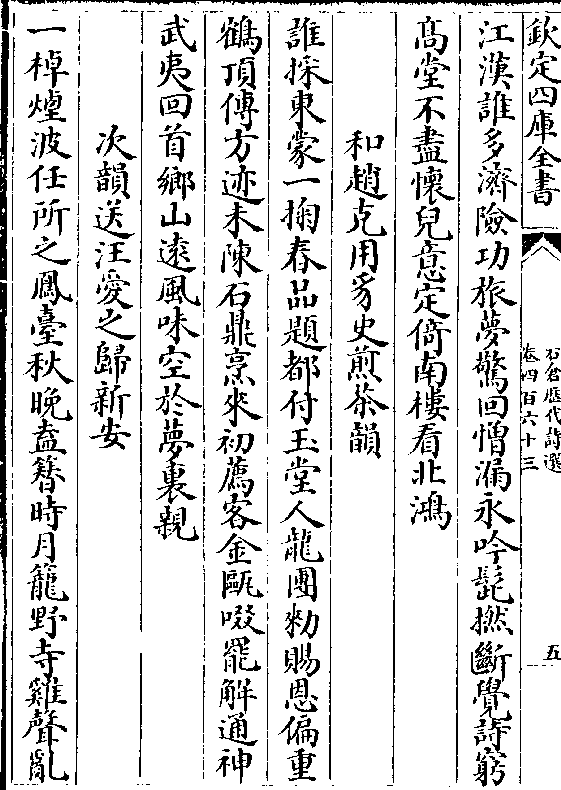 欽定四庫全書
石倉歷代詩選
卷四百六十三
五
江漢誰多濟險功旅夢驚回憎漏永吟髭撚斷覺詩窮
髙堂不盡懷兒意定倚南樓看北鴻
和趙克用多史煎茶韻
誰採東蒙一掬春品題都付玉堂人龍團勅賜恩偏重
鶴頂傳方迹未陳石鼎烹來初薦客金甌啜罷解通神
武夷回首鄉山逺風味空於夢裏親
次韻送汪愛之歸新安
一棹煙波任所之鳳臺秋晚盍簪時月籠野寺雞聲亂